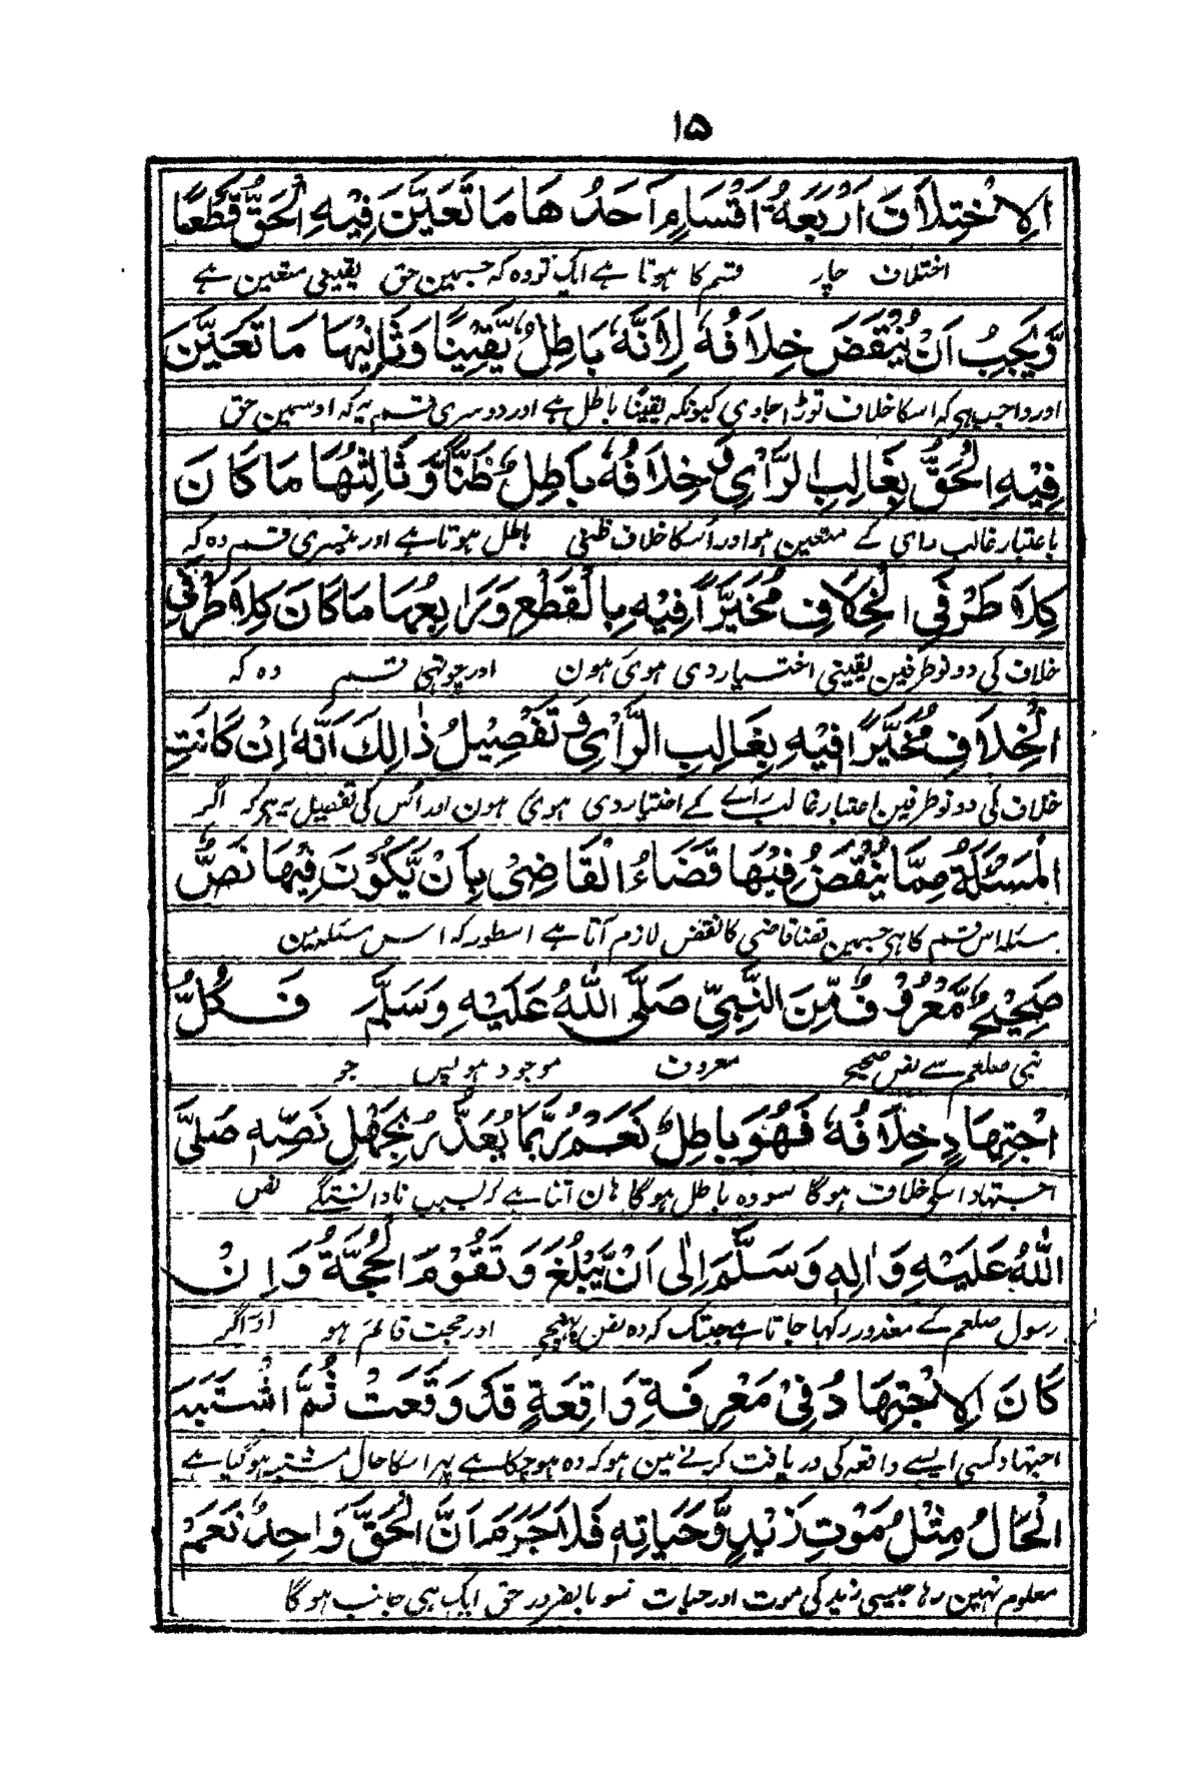 ۱۵
اَلْاِخْتِلَافَ اَرْبَعَةُ اَقْسَامٍ اَحَدُهَا مَا تَعَيَّنَ فِيْهِ الْحَقُّ قَطْعًا
اختلاف چار قسم کا ہوتا ہے ایک تو وہ کہ جسمین حق یقینی متعین ہے
وَّيَجِبُ اَنْ يُّنْقَضَ خِلَافُهٗ لِاَنَّهٗ بَاطِلٌ يَّقِيْنًا وَثَانِيْهَا مَا تَعَيَّنَ
اور واجب ہے کہ اسکا خلاف توڑا جاوی کیونکہ یقینًا باطل ہے اور دوسری قسم یہ کہ اوسمین حق
فِيْهِ الْحَقُّ بِغَالِبِ الرَّاْيِ وَخِلَافُهٗ بَاطِلٌ ظَنًّا وَّثَالِثُهَا مَا كَانَ
باعتبار غالب رای کے متعین ہو اور اُسکا خلاف ظنی باطل ہوتا ہے اور تیسری قسم وہ کہ
كِلَا طَرْفَيِ الْخِلَافِ مُخَيَّرًا فِيْهِ بِالْقَطْعِ وَرَابِعُهَا مَا كَانَ كِلَا طَرْفَيِ
خلاف کی دونو طرفین یقینی اختیار دی ہوئی ہون اور چوتہی قسم وہ کہ
الْخِلَافِ مُخَيَّرًا فِيْهِ بِغَالِبِ الرَّاْيِ وَتَفْصِيْلُ ذٰالِكَ اَنَّهٗ اِنْ كَانَتِ
خلاف کی دونو طرفین اعتبار غالب رائے کے اختیار دی ہوئی ہون اور اُس کی تفصیل یہ ہی کہ اگر
الْمَسْئَلَةُ مِمَّا يُنْقَضُ فِيْهَا قَضَاءُ الْقَاضِىْ بِاَنْ يَّكُوْنَ فِيْهَا نَصٌّ
مسئلہ اس قسم کا ہی جسمین قضا قاضی کا نقض لازم آتا ہے اسطور کہ اس مسئلہ مین
صَحِيْحٌ مَّعْرُوْفٌ مِّنَ النَّبِيِّ صَلَّى اللّٰهُ عَلَيْهِ وَسَلَّمَ فَكُلُّ
نبی صلعم سے نص صحیح معروف موجود ہو پس جو
اجْتِهَادٍ خِلَافُهٗ فَهُوَ بَاطِلٌ نَعَمْ رُبَّمَا يُعَذَّرُ بِجَهْلِ نَصِّهٖ صَلَّى
اجتہاد اسکے خلاف ہوگا سو وہ باطل ہوگا ہان اتنا ہے کہ بسبب نادانستگی نص
اللّٰهُ عَلَيْهِ وَاٰلِهٖ وَسَلَّمَ اِلٰى اَنْ يَّبْلُغَ وَتَقُوْمَ الْحُجَّةُ وَاِنْ
رسول صلعم کے معذور رکہا جاتا ہے جبتک کہ وہ نص پہنچے اور حجت قائم ہو اور اگر
كَانَ الْاِجْتِهَادُ فِىْ مَعْرِفَةِ وَاقِعَةٍ قَدْ وَقَعَتْ ثُمَّ اشْتَبَهَ
اجتہاد کسی ایسے واقعہ کی دریافت کرنے مین ہو کہ وہ ہو چکا ہے پہر اسکا حال مشتبہ ہوگیا ہے
الْحَالُ مِثْلُ مَوْتِ زَيْدٍ وَّحَيَاتِهٖ فَلَا جَرَمَ اَنَّ الْحَقَّ وَاحِدٌ نَعَمْ
معلوم نہین رہا جیسی زید کی موت اور حیات تو بالضرور حق ایک ہی جانب ہوگا